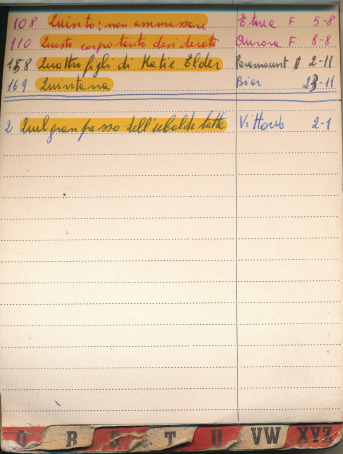 108 Quinto: non ammazzare Etrea F 5-8
110 Questo corpo tanto desiderato Aurora F 8-8
158 Quattro figli di Katie Elder Paramount 2-11
169 Quintana Bios 23-11
2 Quel gran pezzo dell'ubalda tutta Vittorio 2-1
Q R S T U VW XYZ